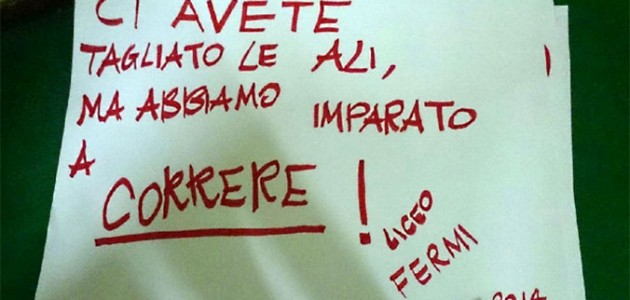 CI AVETE
TAGLIATO LE ALI,
MA ABBIAMO IMPARATO
A
CORRERE!
LICEO
FERMI
2014